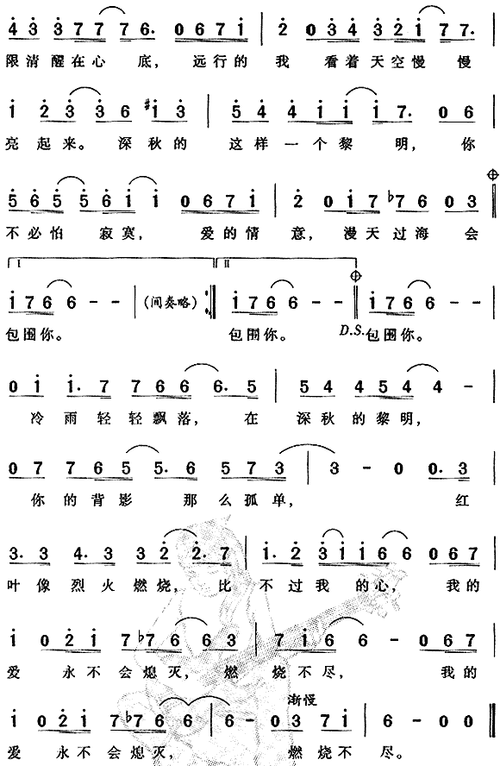 4 3 3 7 7 7 6. 0 6 7 1 | 2 0 3 4 3 2 1 7 7. |
限清醒在心 底， 远行的 我 看着天空慢 慢
1 2 3 3 6 #1 3 | 5 4 4 1 1 1 7. 0 6
亮 起来。 深秋的 这样一个黎 明， 你
5 6 5 5 6 1 1 0 6 7 1 | 2 0 1 7 b7 6 0 3
不必怕 寂寞， 爱的情 意， 漫天过海 会
I II
1 7 6 6 - - | (间奏略) :| 1 7 6 6 - - | 1 7 6 6 - - |
包围你。 包围你。 D.S.包围你。
0 1 1. 7 7 6 6 6. 5 | 5 4 4 5 4 4 - |
冷雨轻轻飘落， 在 深秋的黎明，
0 7 7 6 5 5. 6 5 7 3 | 3 - 0 0. 3
你的背影 那么孤单， 红
3. 3 4. 3 3 2 2. 7 | 1. 2 3 1 1 6 6 0 6 7
叶像烈火燃烧， 比 不过我 的心， 我的
1 0 2 1 7 b7 6 6 6 3 | 7 1 6 6 - 0 6 7
爱 永不会熄灭， 燃 烧不尽， 我的
渐慢
1 0 2 1 7 b7 6 6 | 6 - 0 3 7 1 | 6 - 0 0 ‖
爱 永不会熄灭， 燃烧不 尽。